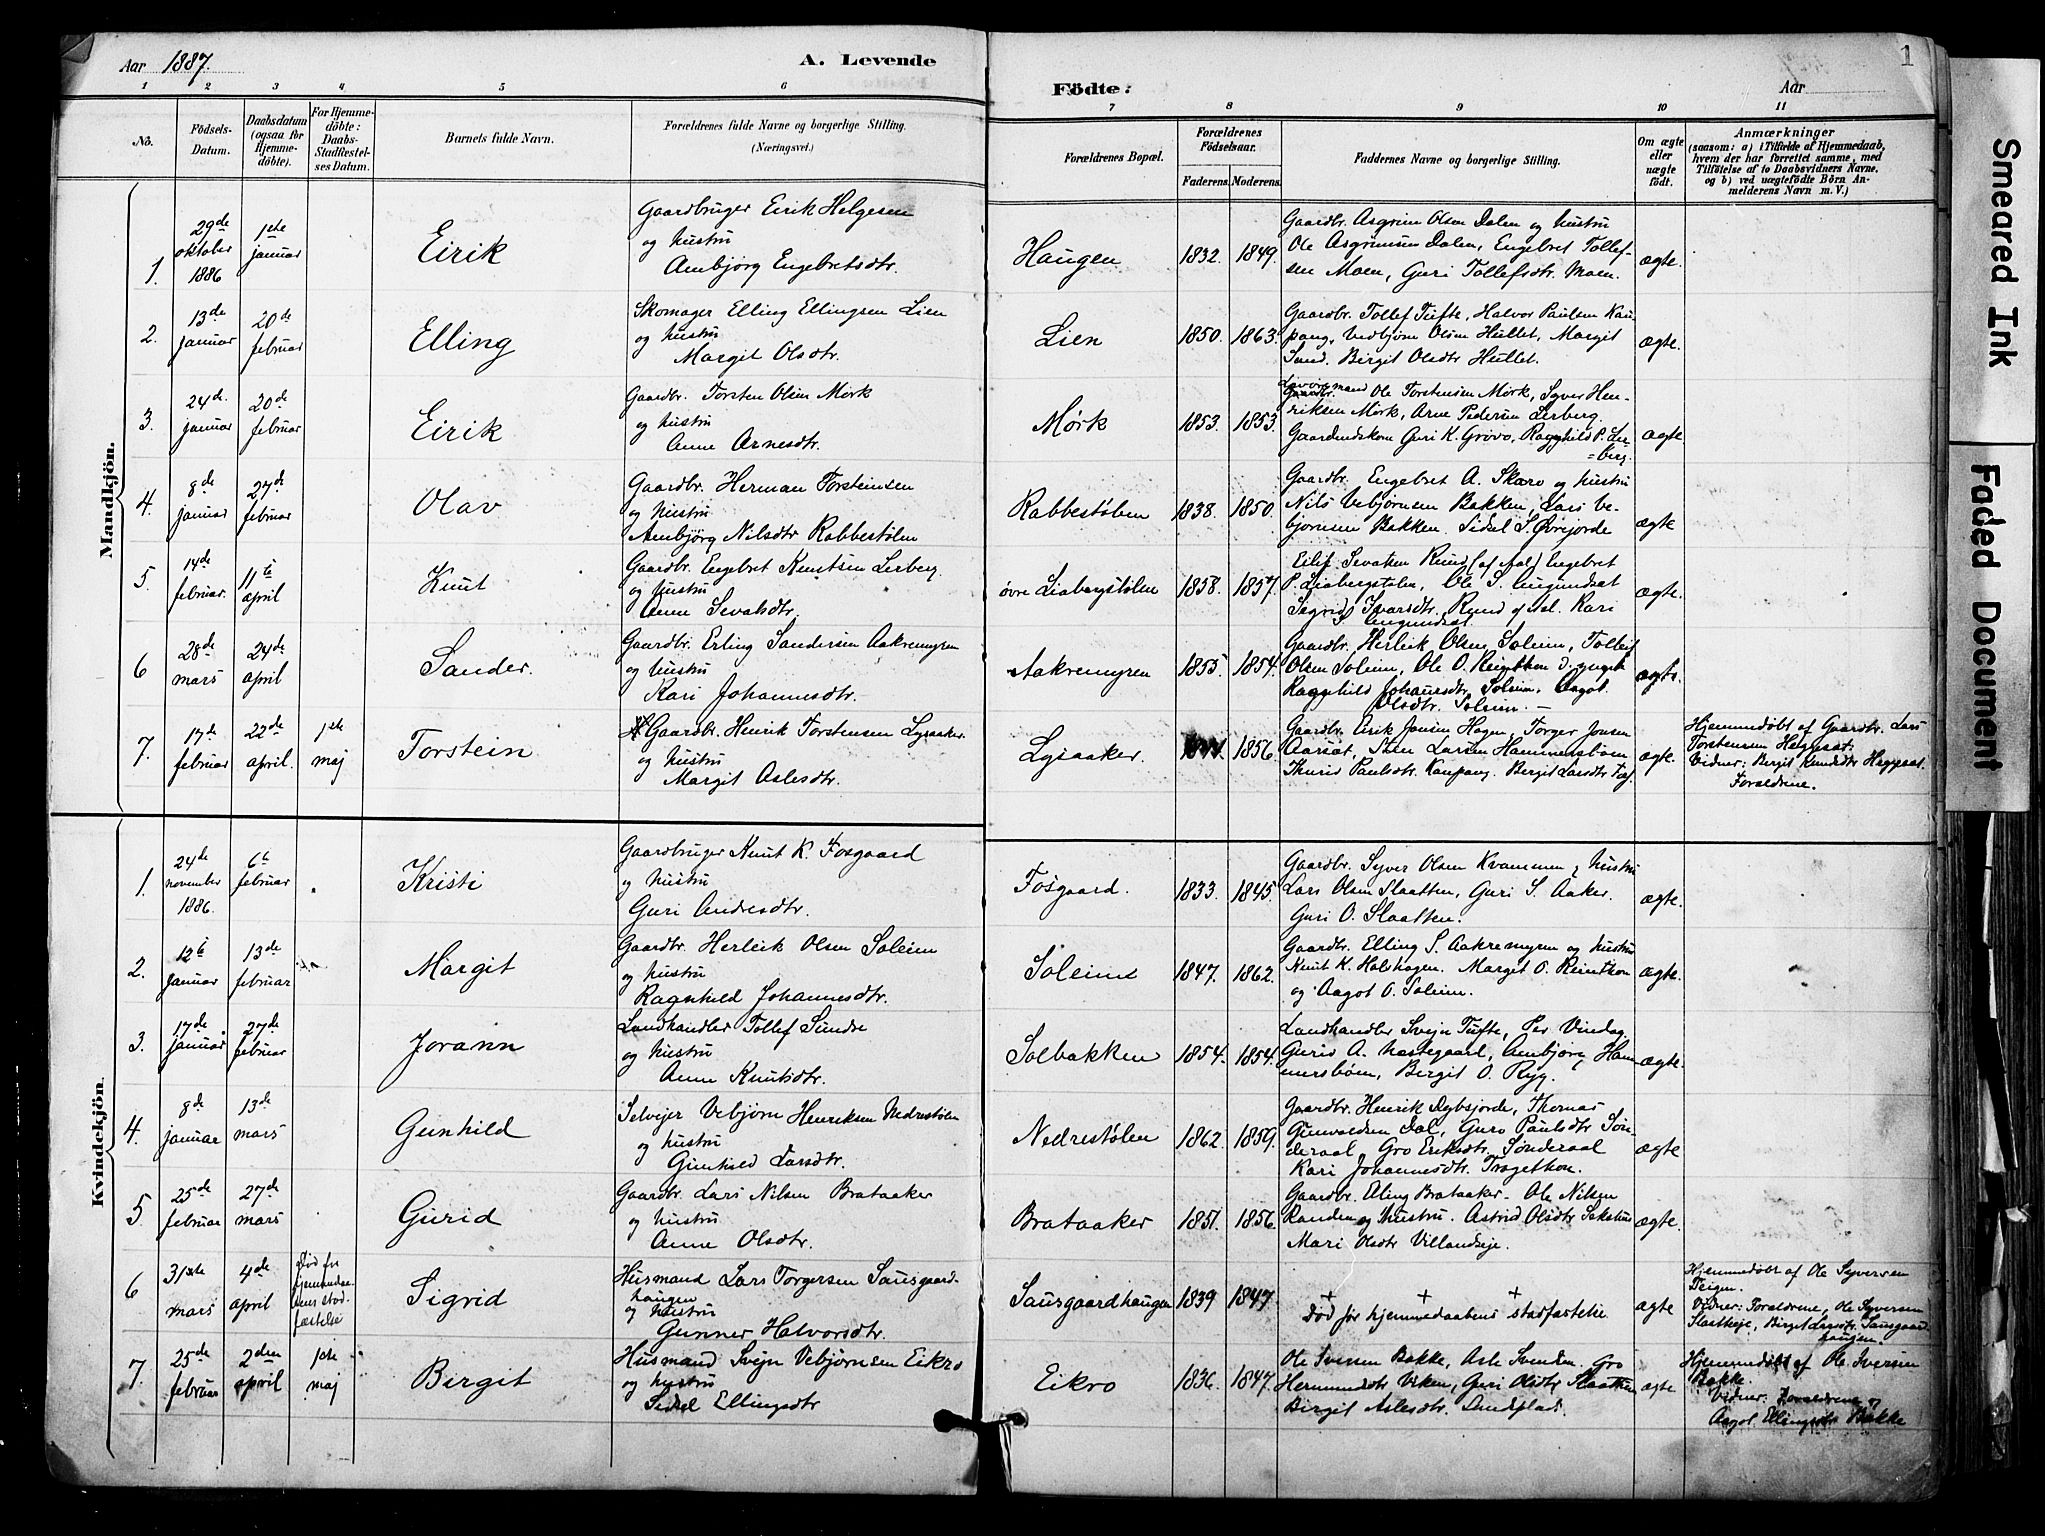 Aar 1887.
A. Levende
Födte:
Aar
1
1 2 3 4 5 6 7 8 9 10 11
No.
Födsels-Datum.
Daabsdatum (ogsaa for Hjemmedöbte).
For Hjemmedöbte: Daabs-Stadfæstelses Datum.
Barnets fulde Navn.
Forældrenes fulde Navne og borgerlige Stilling. (Næringsvei.)
Forældrenes Bopæl.
Forældrenes Födselsaar.
Faderens. Moderens.
Faddernes Navne og borgerlige Stilling.
Om ægte eller uægte födt.
Anmærkninger
(saasom: a) i Tilfælde af Hjemmedaab, hvem der har forrettet samme, med Tilföielse af to Daabsvidners Navne, og b) ved uægtefödte Börn Anmelderens Navn m. V.)
Mandkjön.
1. 29de oktober 1886 1ste januar
Eirik
Gaardbruger Eirik Helgesen
og hustru
Ambjörg Engebretsdtr.
Haugen 1832. 1849.
Gaardbr. Asgrim Olsen Dalen og hustru
Ole Asgrimsen Dalen, Engebret Tollef-
sen Moen, Guri Tollefsdtr. Moen.
ægte.
2. 13de januar 20de februar
Elling
Skomager Elling Ellingsen Lien
og hustru
Margit Olsdtr.
Lien 1850. 1863.
Gaardbr. Tollef Tufte, Halvor Paulsen Kau-
pang, Vebjörn Olsen Hullet, Margit
Sand. Birgit Olsdtr Hullet.
ægte.
3. 24de januar 20de februar
Eirik
Gaardbr. Torsten Olsen Mörk
og hustru
Anne Arnesdtr.
Mörk 1853. 1853.
Ole Torstensen Mörk, Syver Hen-
riksen Mörk, Arne Pedersen Lerberg.
Guri K. Grövo, Ragnhild P. Ler-
=berg.
ægte
4. 8de januar 27de februar
Olav
Gaardbr. Herman Torsteinsen
og hustru
Ambjörg Nilsdtr Rabbestölen
Rabbestölen 1838. 1850.
Gaardbr. Engebret A. Skaro og hustru
Nils Vebjörnsen Bakken, Lars Ve-
björnsen Bakken. Sidsel S. Övrejorde
ægte
5. 14de februar. 11te april
Knut
Gaardbr. Engebret Knutsen Lerberg.
og hustru
Anne Sevatsdtr.
övre Liabergstölen 1858. 1857.
Eilif Sevatsen Rund (af Aal) Engebret
P. Liabergstölen, Ole S.
Sigrid Ivarsdtr. Rund af Aal. Kari
ægte.
6 28de mars 24de april
Sander.
Gaardbr. Erling Sandersen Aakremyren
og hustru
Kari Johannesdtr.
Aakremyren 1855. 1854.
Gaardbr. Herleik Olsen Soleim, Tollef
Olsen Soleim, Ole O. d. yngre
Ragnhild Johansdtr. Soleim. Aagot
Olsdtr. Soleim. —
ægte.
7. 17de februar 22de april. 1ste maj
Torstein
Gaardbr. Henrik Torstensen Lysaaker.
og hustru
Margit Aslesdtr.
Lysaaker. 1856.
Gaardbr. Eirik Jonsen Hagen, Torger Jonsen
Sten Larsen Hammersböen
Thurid Paulsdtr. Kaupang. Bergit Larsdtr
ægte.
Hjemmedöbt af Gaardbr. Lars
Torstensen
Vidner: Bergit Knudsdtr
Forældrene.
Kvindekjön.
1. 24de november 1886. 6te februar
Kristi
Gaardbruger Knut K. Fosgaard
og hustru
Guri Andresdtr.
Fosgaard. 1833. 1845.
Gaardbr. Syver Olsen Kvammen, hustru
Lars Olsen Slaatten, Guri S. Aaker.
Guri O. Slaatten.
ægte.
2. 12te januar 13de februar
Margit
Gaardbr. Herleik Olsen Soleim
og hustru
Ragnhild Johannesdtr.
Soleim 1847. 1862.
Gaardbr. Elling S. Aakremyren og hustru
Knut K. Halvhagen. Marget O. Reinton
og Aagot O. Soleim.
ægte.
3. 17de januar 27de februar
Jorann
Landhandler Tollef Sundre
og hustru
Anne Knutsdtr.
Solbakken 1854. 1854.
Landhandler Svejn Tufte, Per Vindag
Gurid A. Nestegaard, Ambjörg Ham-
mersböen, Bergit O. Ryg.
ægte.
4. 8de januar 13de mars
Gunhild
Selvejer Vebjörn Henriksen Nedrestölen
og hustru
Gunhild Larsdtr.
Nedrestölen 1862. 1859.
Gaardbr. Henrik Dybsjorde, Thomas
Gunvaldsen Dal, Guro Paulsdtr Sön-
deraal, Gro Eriksdtr. Sönderaal
Kari Johannesdtr. Trogethon.
ægte
5. 25de februar 27de mars
Gurid
Gaardbr. Lars Nilsen Brataaker
og hustru
Anne Olsdtr.
Brataaker 1851. 1856.
Gaardbr. Elling Brataaker. Ole Nilsen
Randen og hustru. Astrid Olsdtr
Mari Olsdtr Villandseje.
ægte.
6 31ste mars 4de april Död för hjemmedaabens stadfæstelse
Sigrid
Husmand Lars Torgersen Sausgaard-
haugen
og hustru
Gunner Halvorsdtr.
Sausgaardhaugen 1839 1847.
+ + +
Död för hjemmedaabens stadfæstelse
ægte
Hjemmedöbt af Ole Syversen
Teigen.
Vidner: Forældrene, Ole Syversen
Slaatteje, Birget Larsdtr. Sausgaard-
haugen.
7. 25de februar 2den april 1ste maj
Birgit
Husmand Svejn Vebjörnsen Eikro
og hustru
Sidsel Ellingsdtr
Eikro 1836. 1847.
Ole Iversen Bakke, Asle Svendsen. Gro
Hermundsdtr Viken, Guri Olsdtr Slaatten
Birgit Aslesdtr. Sundplads.
ægte
Hjemmedöbt af Ole Iversen
Bakke.
Vidner: Forældrene og
Aagot Ellingsdtr Bakke
Smeared Ink
Faded Document